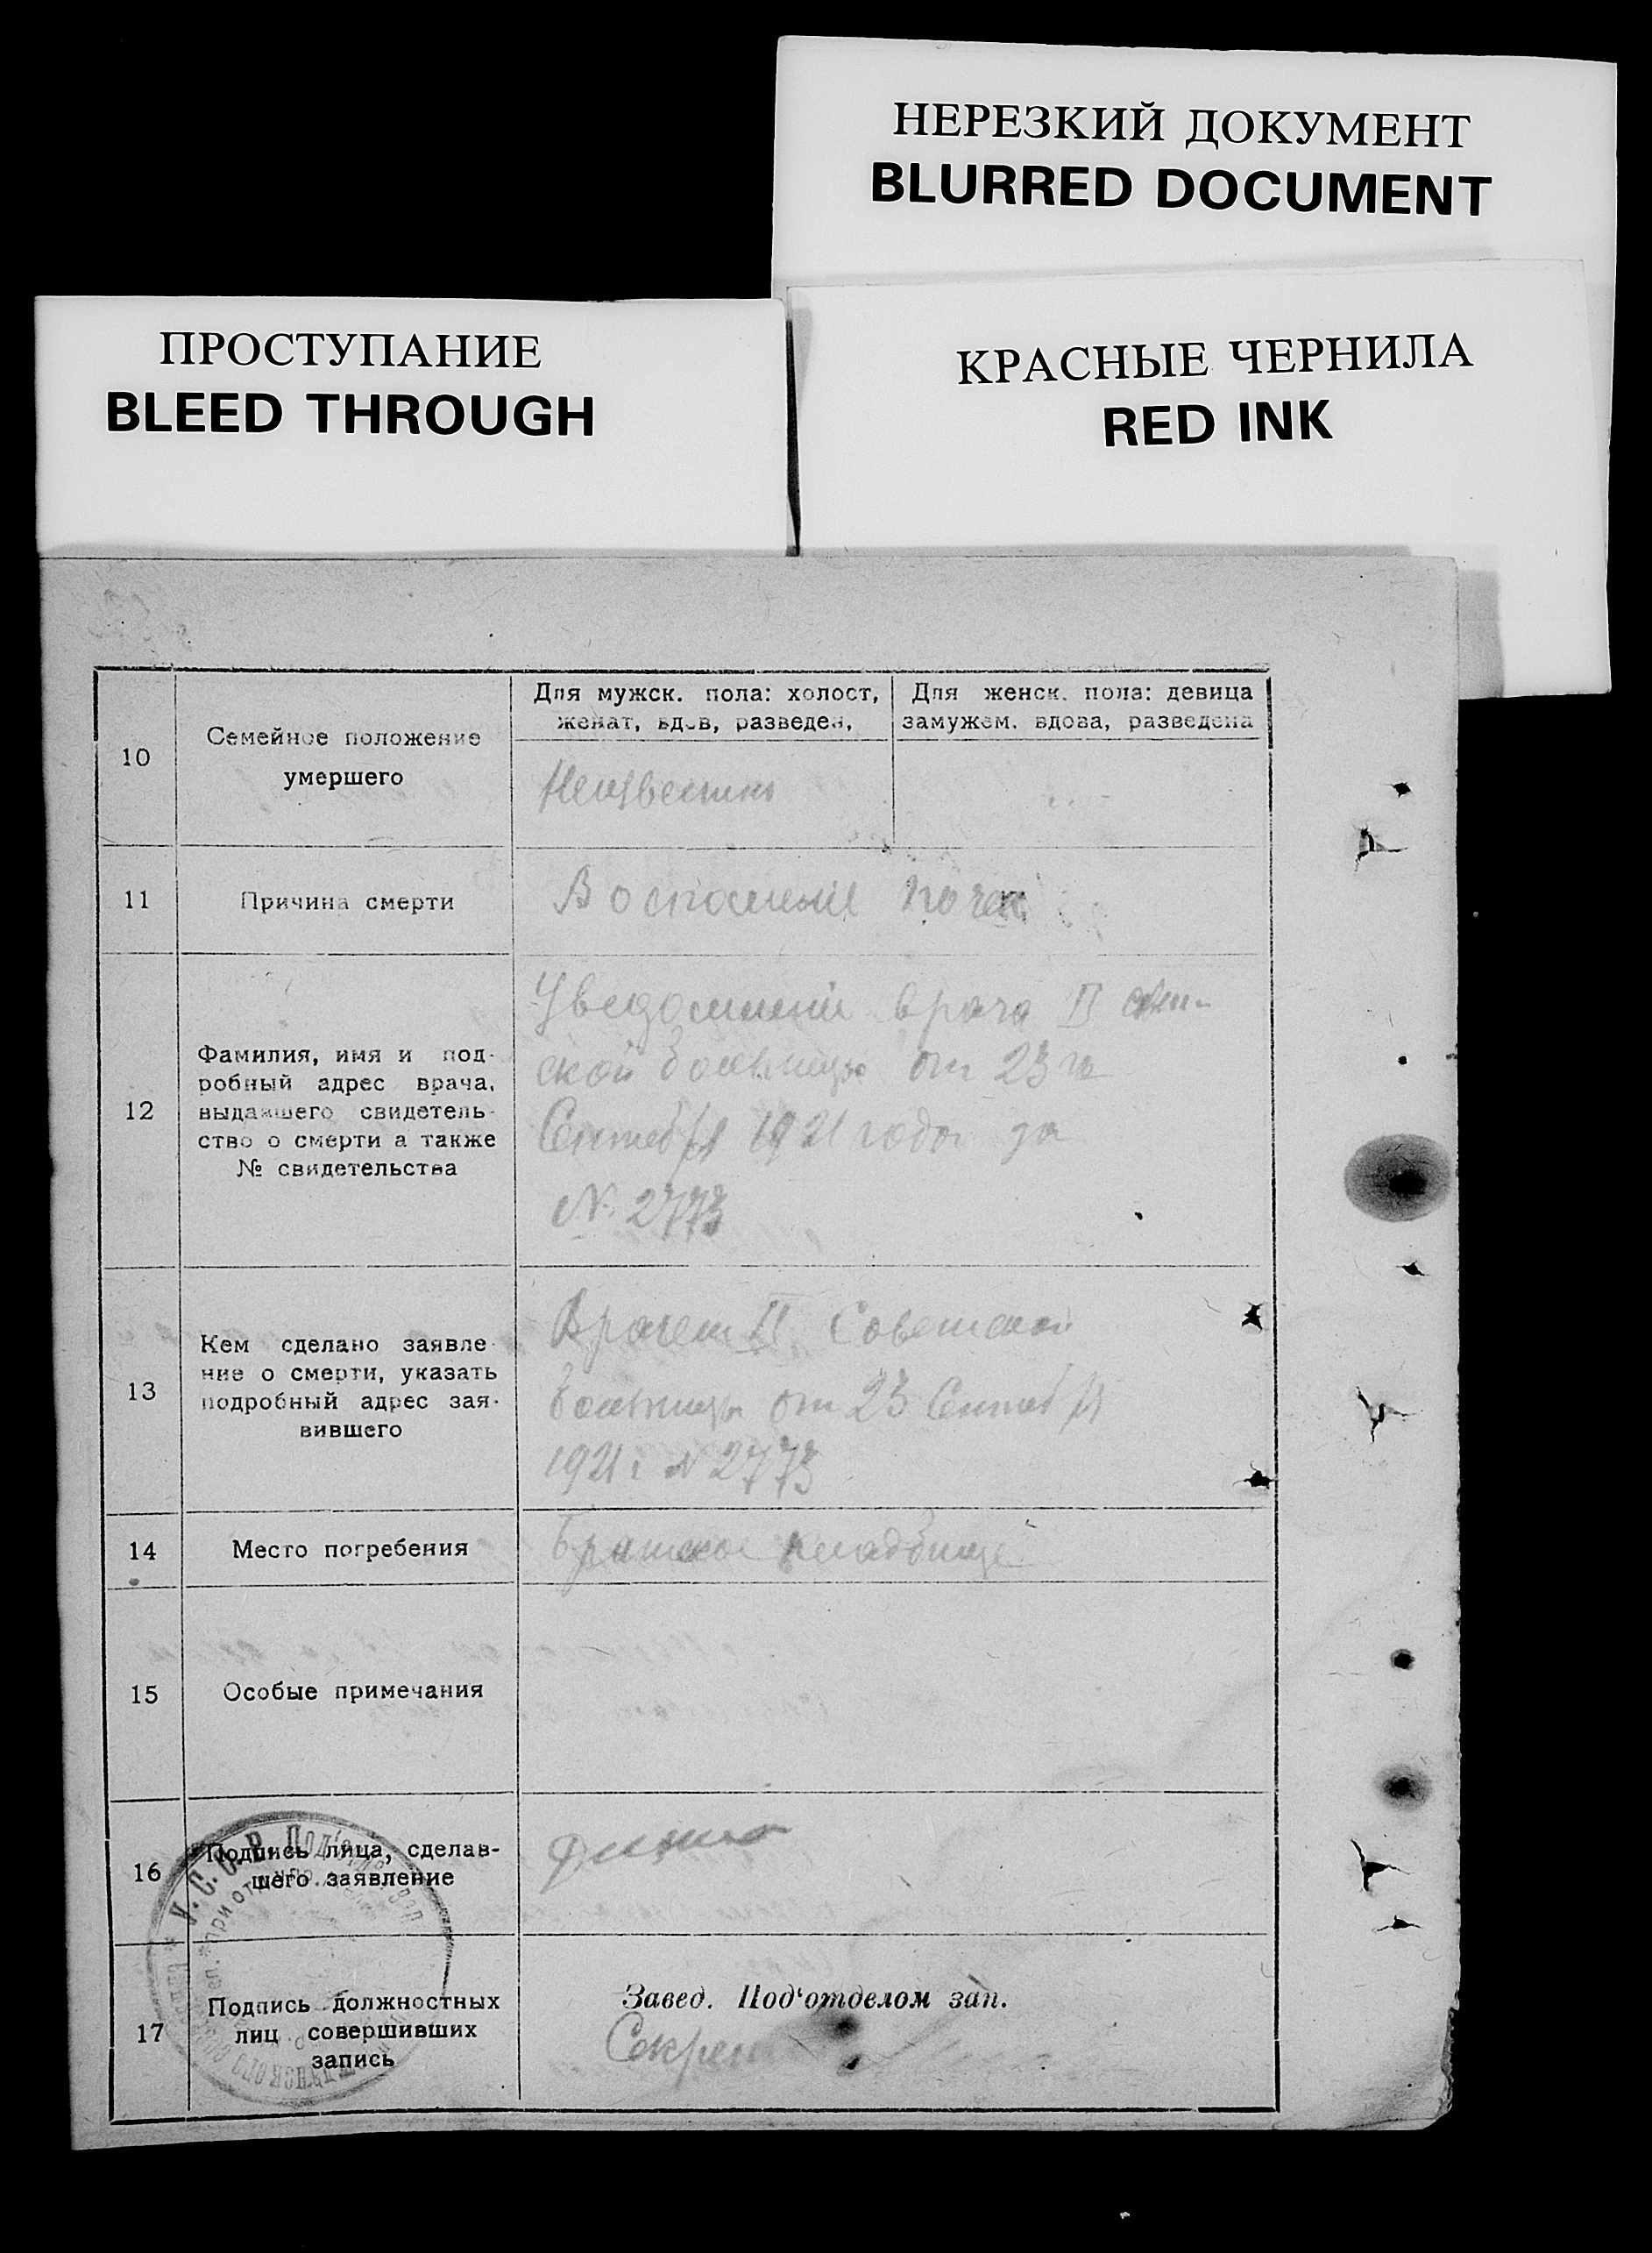 НЕРЕЗКИЙ ДОКУМЕНТ
BLURRED DOCUMENT
ПРОСТУПАНИЕ
BLEED THROUGH
КРАСНЫЕ ЧЕРНИЛА
RED INK
10
Семейное положение
умершего
Для мужск. пола: холост,
женат, вдов, разведен,
Для женск. пола: девица
замужем. вдова, разведена
Неизвестно
11
Причина смерти
Воспаление почек
12
Фамилия, имя и под-
робный адрес врача,
выдавшего свидетель-
ство о смерти а также
№ свидетельства
Уведомление врача II совет-
ской больницы от 23 го
Сентября 1921 года за
№ 2773
13
Кем сделано заявле-
ние о смерти, указать
подробный адрес зая-
вившего
Врачем II Советской
больницы от 23 Сентября
1921 г № 2773
14
Место погребения
Братское кладбище
15
Особые примечания
16
Подпись лица, сделав-
шего заявление
17
Подпись должностных
лиц совершивших
запись
Завед. Под‘отделом зап.
Секрет
У.С.С.Р. Под‘отдел